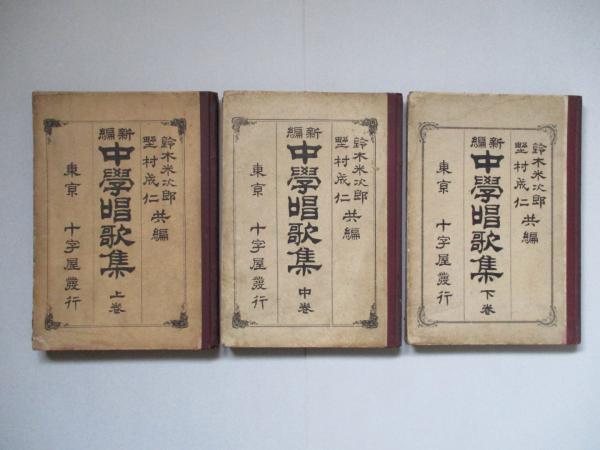 鈴木米次郎
野村成仁 共編
新編
中學唱歌集 上巻
東京 十字屋發行
鈴木米次郎
野村成仁 共編
新編
中學唱歌集 中巻
東京 十字屋發行
鈴木米次郎
野村成仁 共編
新編
中學唱歌集 下巻
東京 十字屋發行